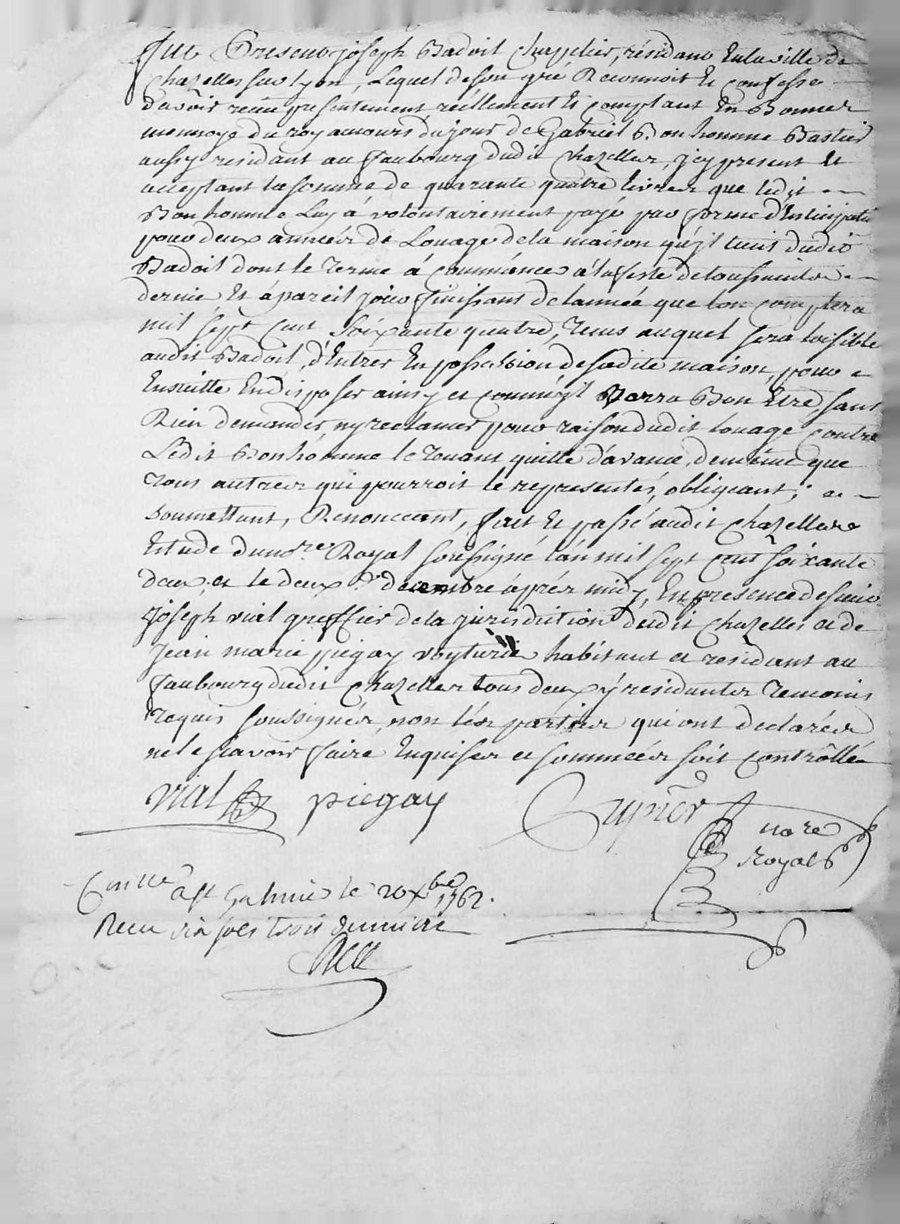 fut Present joseph Badoit Chappelier, résidant En la ville de
Chazelles sur Lyon, Lequel de son gré Reconnoit Et confesse
d'avoir receu présentement réellement Et comptant En Bonne
monnoye du roy au cours du jour de Gabriel Bonhomme
aussy residant au faubourg dudit Chazelles, icy present Et
acceptant la somme de quarante quatre livres que ledit
Bonhomme Luy à volontairement payé par forme d'Enticipati
pour deux années de Louage de la maison qu'jl tient dudit
Badoit dont le Terme à commancé à la feste de toussaints
dernie Et à pareil jour finissant de lannée que lon comptera
mil sept cent soixante quatre, Tems auquel sera loisible
audit Badoit, d'Entrer En possession de sadite maison, pour
Ensuitte En disposer ainsy et comm'jl verra Bon Etre sans
Rien demander, ny reclamer pour raison dudit louage contre
Ledit Bonhomme le Tenant quitte d'avance, de même que
Tous autres qui pourroit le representés, obligeant,
soumettant, Renonceant, fait Et passé audit Chazelles
Estude du nore Royal soussigné l'an mil sept cent soixante
deux, et le deux Xre decembre après midy, En presence de sieur
joseph vial greffier de la jurisdiction dudit Chazelles et de
jean marie piegay voyturié habitant et residant au
faubourg dudit Chazelles tous deux y residantes Temoins
Requis soussignés, non les parties qui ont declarées
ne le scavoir faire Enquises et sommées soit contrôllé
vial piegay nore
Royal
Conllé a St Galmier le 20 xbre 1762.
Receu six sols trois deniers